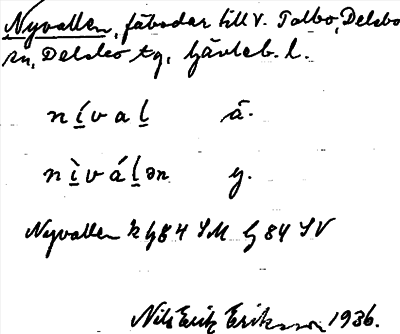 Nyvallen, fäbodar till V. Tolbo, Delsbo
sn, Delsbo tg, Gävleb. l.
n í̱ v a ḻ ä.
n ì̱ v á ḻ ə n y.
Nyvallen k G84 SM G 84 SV
Nils Erik Eriksson 1936.